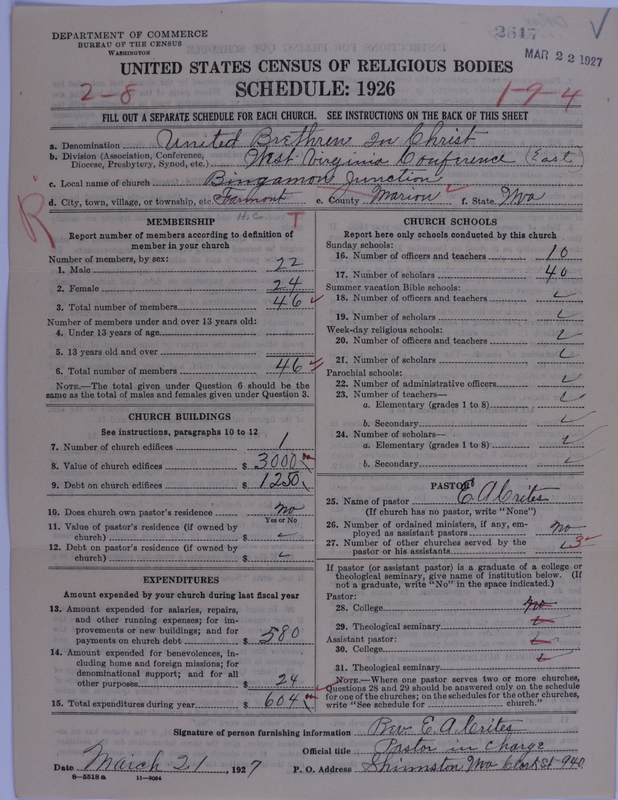 DEPARTMENT OF COMMERCE
BUREAU OF THE CENSUS
WASHINGTON
2617
MAR 22 1927
UNITED STATES CENSUS OF RELIGIOUS BODIES
2-8
SCHEDULE: 1926
1-9-4
FILL OUT A SEPARATE SCHEDULE FOR EACH CHURCH. SEE INSTRUCTIONS ON THE BACK OF THIS SHEET
a. Denomination United Brethren In Christ
b. Division (Association, Conference, Diocese, Presbytery, Synod, etc.) West Virginia Conference (East)
c. Local name of church Bingamon Junction
d. City, town, village, or township, etc. Fairmont e. County Marion f. State
R
H.C.
T
MEMBERSHIP
Report number of members according to definition of member in your church
Number of members, by sex:
1. Male 22
2. Female 24
3. Total number of members 46
Number of members under and over 13 years old:
4. Under 13 years of age
5. 13 years old and over
6. Total number of members 46
NOTE.—The total given under Question 6 should be the same as the total of males and females given under Question 3.
CHURCH BUILDINGS
See instructions, paragraphs 10 to 12
7. Number of church edifices 1
8. Value of church edifices $ 3000
9. Debt on church edifices $ 1250
10. Does church own pastor's residence No
Yes or No
11. Value of pastor's residence (if owned by church) $
12. Debt on pastor's residence (if owned by church) $
EXPENDITURES
Amount expended by your church during last fiscal year
13. Amount expended for salaries, repairs, and other running expenses; for improvements or new buildings; and for payments on church debt $ 580
14. Amount expended for benevolences, including home and foreign missions; for denominational support; and for all other purposes $ 24
15. Total expenditures during year $ 604
CHURCH SCHOOLS
Report here only schools conducted by this church
Sunday schools:
16. Number of officers and teachers 10
17. Number of scholars 40
Summer vacation Bible schools:
18. Number of officers and teachers
19. Number of scholars
Week-day religious schools:
20. Number of officers and teachers
21. Number of scholars
Parochial schools:
22. Number of administrative officers
23. Number of teachers—
a. Elementary (grades 1 to 8)
b. Secondary
24. Number of scholars—
a. Elementary (grades 1 to 8)
b. Secondary
PASTOR
25. Name of pastor E A Crites
(If church has no pastor, write "None")
26. Number of ordained ministers, if any, employed as assistant pastors No
27. Number of other churches served by the pastor or his assistants 3
If pastor (or assistant pastor) is a graduate of a college or theological seminary, give name of institution below. (If not a graduate, write "No" in the space indicated.)
Pastor:
28. College No
29. Theological seminary
Assistant pastor:
30. College
31. Theological seminary
NOTE.—Where one pastor serves two or more churches, Questions 28 and 29 should be answered only on the schedule for one of the churches; on the schedules for the other churches, write "See schedule for church."
Signature of person furnishing information Rev. E. A. Crites
Official title Pastor in Charge
Date March 21, 1927 P. O. Address Shinnston Clark St 940
8-5518a 11-9054